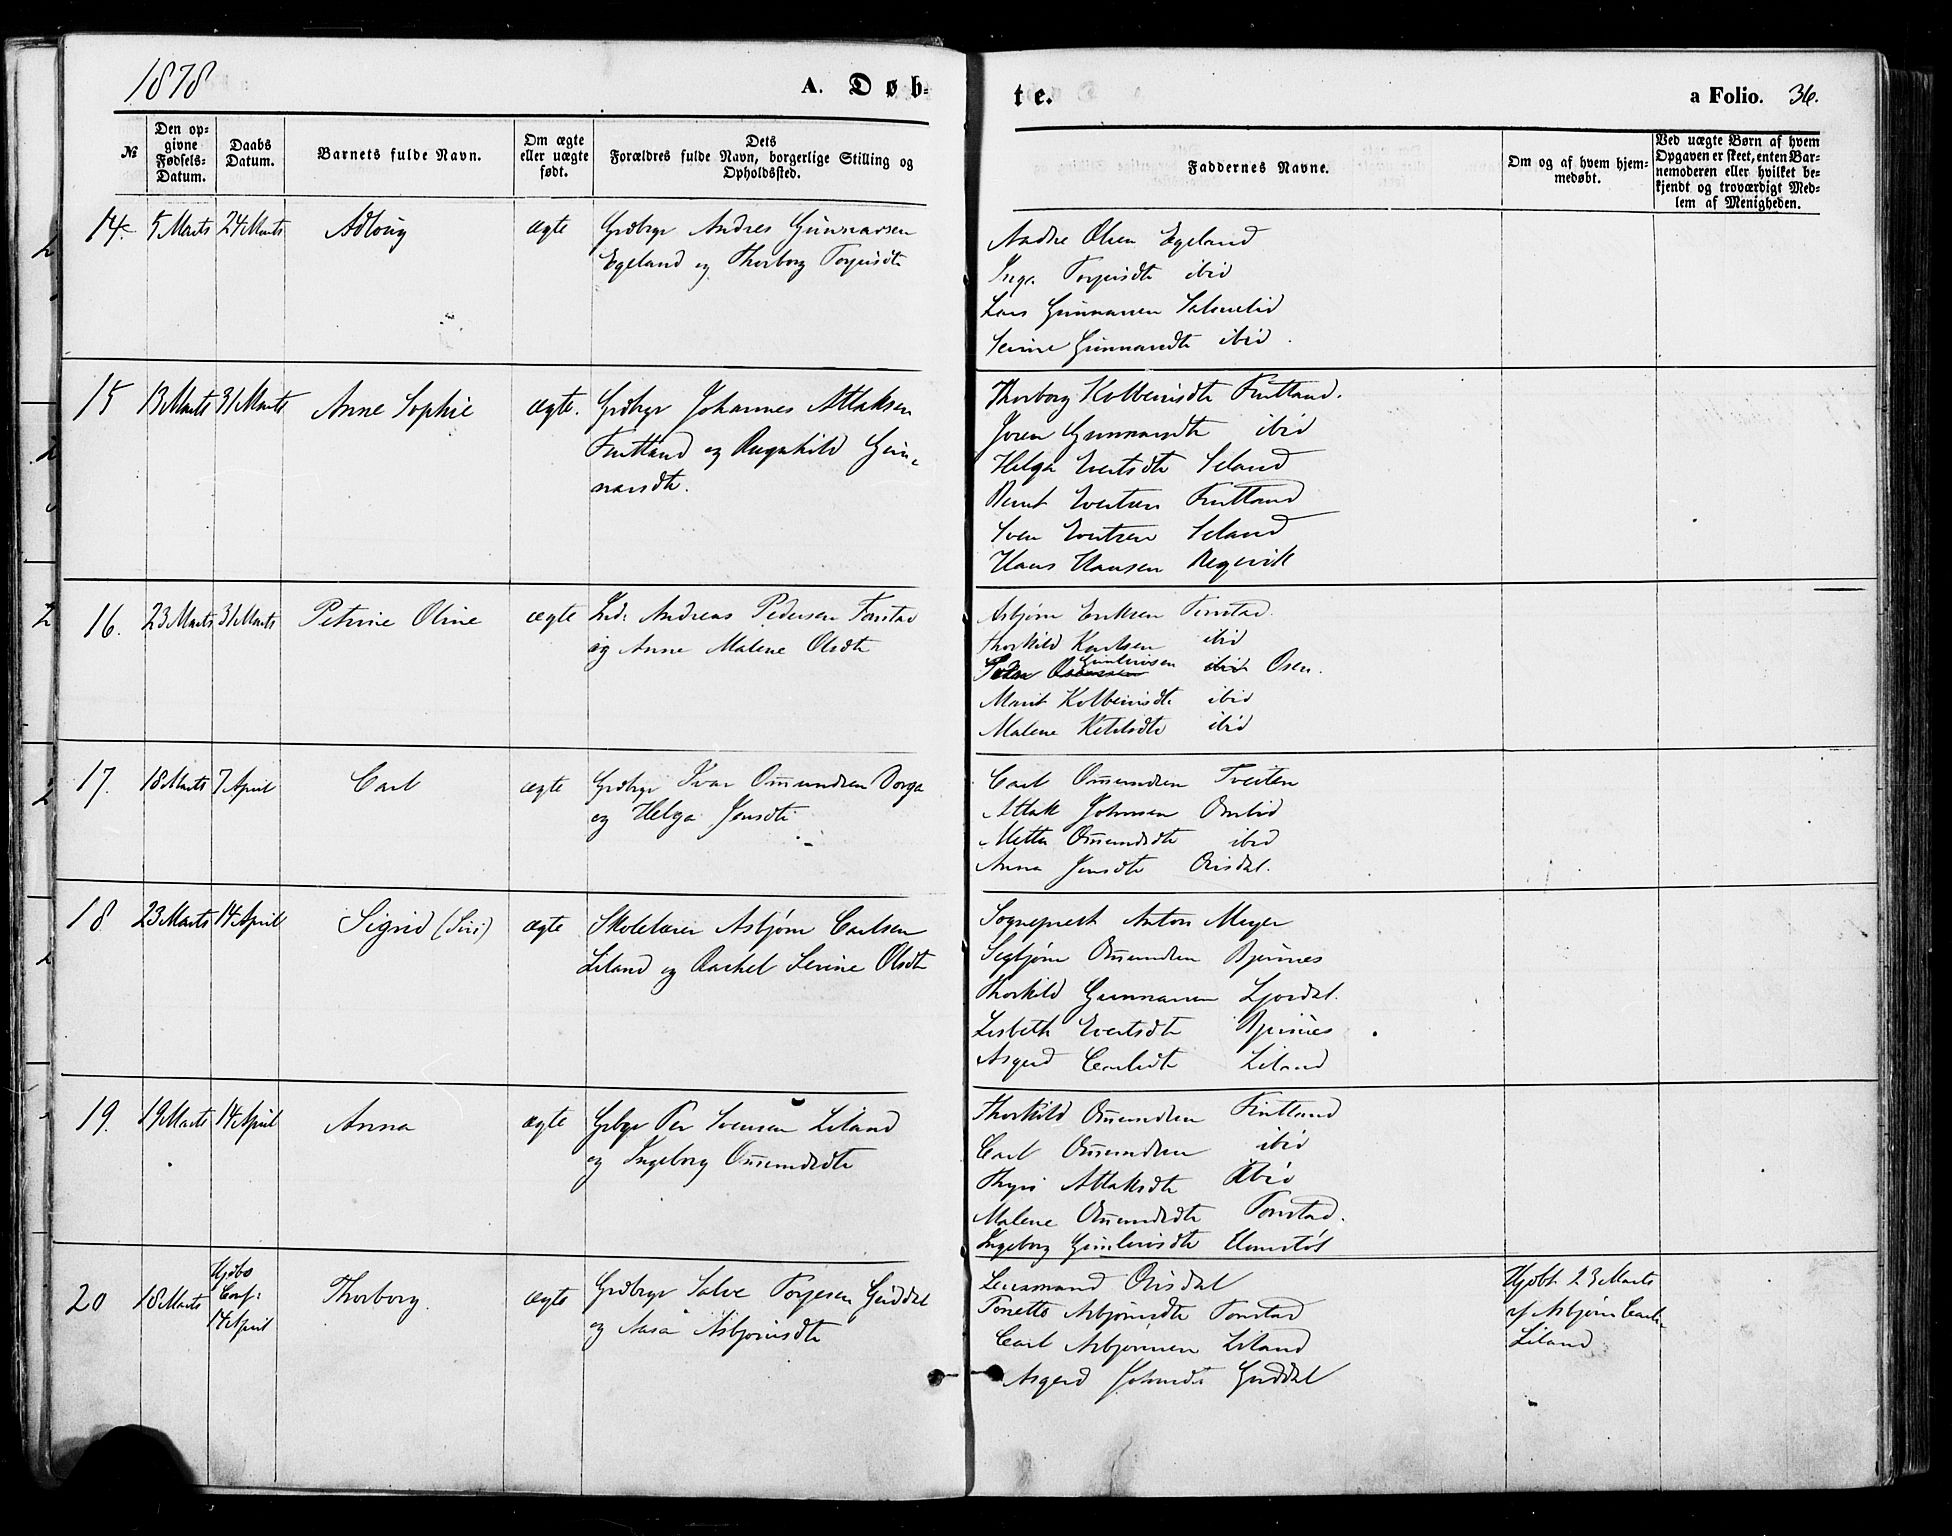 1878
A. Døb-
te.
a Folio. 36.
№
Den op-
givne
Fødsels-
Datum.
Daabs
Datum.
Barnets fulde Navn.
Om ægte
eller uægte
født.
Dets
Forældres fulde Navn, borgerlige Stilling og
Opholdssted.
Faddernes Navne.
Om og af hvem hjem-
medøbt.
Ved uægte Børn af hvem
Opgaven er skeet, enten Bar-
nemoderen eller hvilket be-
kjendt og troværdigt Med-
lem af Menigheden.
14. 5 Marts 24 Marts Adloug ægte Grdbrgr Andres Gunnarsen
Egeland og Thorborg Torjusdtr
Aadne Olsen Egeland
Inga Torjusdtr ibid
Lars Gunnarsen Salmelid
Serine Gunnarsdtr ibid.
15 13 Marts 31 Marts Anne Sophie ægte. Grdbrgr Johannes Atlaksen
Fintland og Ragnhild Gun-
narsdtr.
Thorborg Kolbeinsdtr Fintland.
Joren Gunnarsdtr ibid
Helga Evertsdtr Seland
Bernt Evertsen Fintland
Sven Evertsen Seland
Hans Hansen Regevik
16. 23 Marts 31 Marts Petrine Oline ægte Ind. Andreas Pedersen Tonstad
og Anne Malene Olsdtr
Asbjørn Eriksen Tonstad.
Thorkild Karlsen ibid
Gunleivsen Osen.
Marit Kolbeinsdtr ibid
Malene Ketilsdtr ibid
17. 18 Marts 7 April Carl ægte Grdbrgr Ivar Omundsen Dorga
og Helga Jensdtr
Carl Omundsen Tveiten
Atlak Johnsen Omlid
Metta Omundsdtr ibid
Anna Jensdtr Ousdal.
18 23 Marts 14 April Sigrid (Siri) ægte Skolelærer Asbjørn Carlsen
Liland og Rachel Serine Olsdtr
Sogneprest Anton Meyer
Sigbjørn Omundsen Bjunes
Thorkild Gunnarsen Ljosdal.
Lisbeth Evertsdtr Bjunes
Asgerd Carlsdtr Liland
19. 19 Marts 14 April Anna ægte Grbgr Per Svensen Liland
og Ingeborg Omundsdtr
Thorkild Omundsen Fintland
Carl Omundsen ibid
Thyri Atlaksdtr ibid
Malene Omundsdtr Tonstad.
Ingeborg Gunleivsdtr
20 18 Marts Hjdbs
Conf.
14 April
Thorborg. ægte Grdbrgr Salve Torjesen Guddal
og Aasa Asbjørnsdtr
Lensmand Ousdal
Tonette Asbjørnsdtr Tonstad
Carl Asbjørnsen Liland
Asgerd Johnsdtr Guddal
Hjdbt 23 Marts
af Asbjørn Carls.
Liland